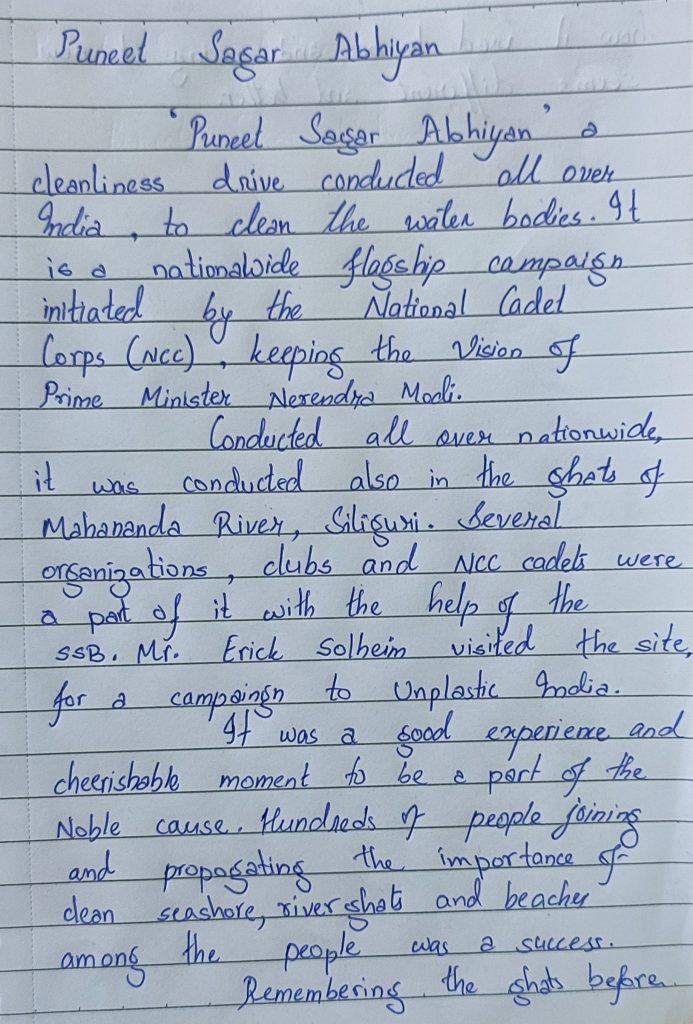 Puneet Sagar Abhiyan
'Puneet Sagar Abhiyan' a
cleanliness drive conducted all over
India, to clean the water bodies. It
is a nationalwide flagship campaign
initiated by the National Cadet
Corps (NCC), keeping the Vision of
Prime Minister Nerendra Modi.
Conducted all over nationwide,
it was conducted also in the ghats of
Mahananda River, Siliguri. Several
organizations, clubs and NCC cadets were
a part of it with the help of the
SSB. Mr. Erick Solheim visited the site,
for a campaingn to Unplastic India.
It was a good experience and
cheerishable moment to be a part of the
Noble cause. Hundreds of people joining
and propagating the importance of
clean seashore, river ghats and beaches
among the people was a success.
Remembering the ghats before